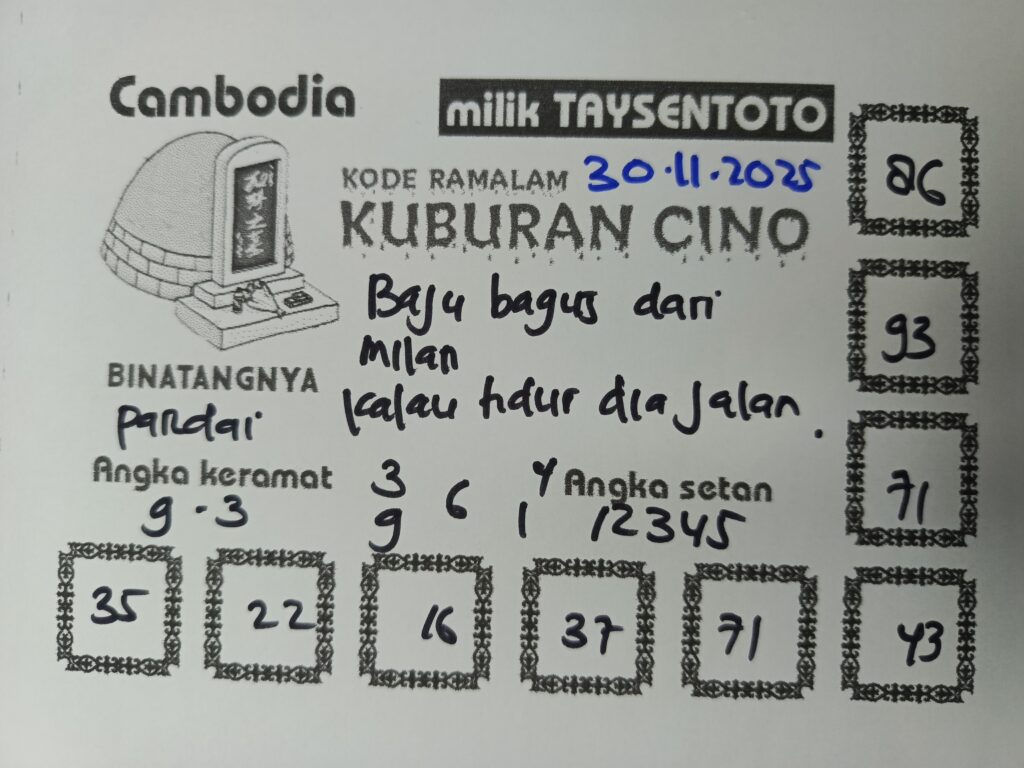 Cambodia
milik TAYSENTOTO
KODE RAMALAM 30.11.2025
KUBURAN CINO
Baju bagus dari
milan
kalau tidur dia jalan.
BINATANGNYA
pandai
Angka keramat
9.3
3 6 4
9 1
Angka setan
12345
86
93
71
35 22 16 37 71 43